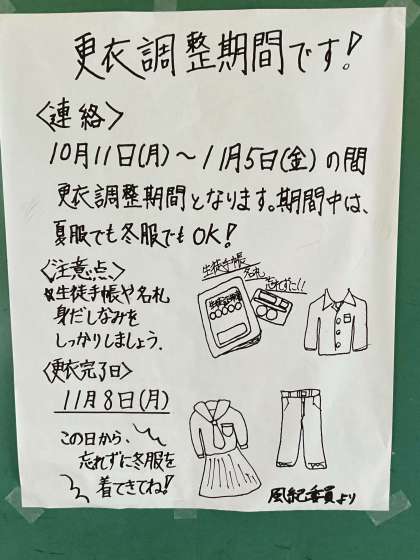 更衣調整期間です!
<連絡>
10月11日(月)〜11月5日(金)の間
更衣調整期間となります。期間中は、
夏服でも冬服でもOK!
<注意点>
※生徒手帳や名札
身だしなみを
しっかりしましょう.
生徒手帳
名札
忘れずに!!
生徒手帳
<更衣完了日>
11月8日(月)
この日から、
忘れずに冬服を
着てきてね!
風紀委員より